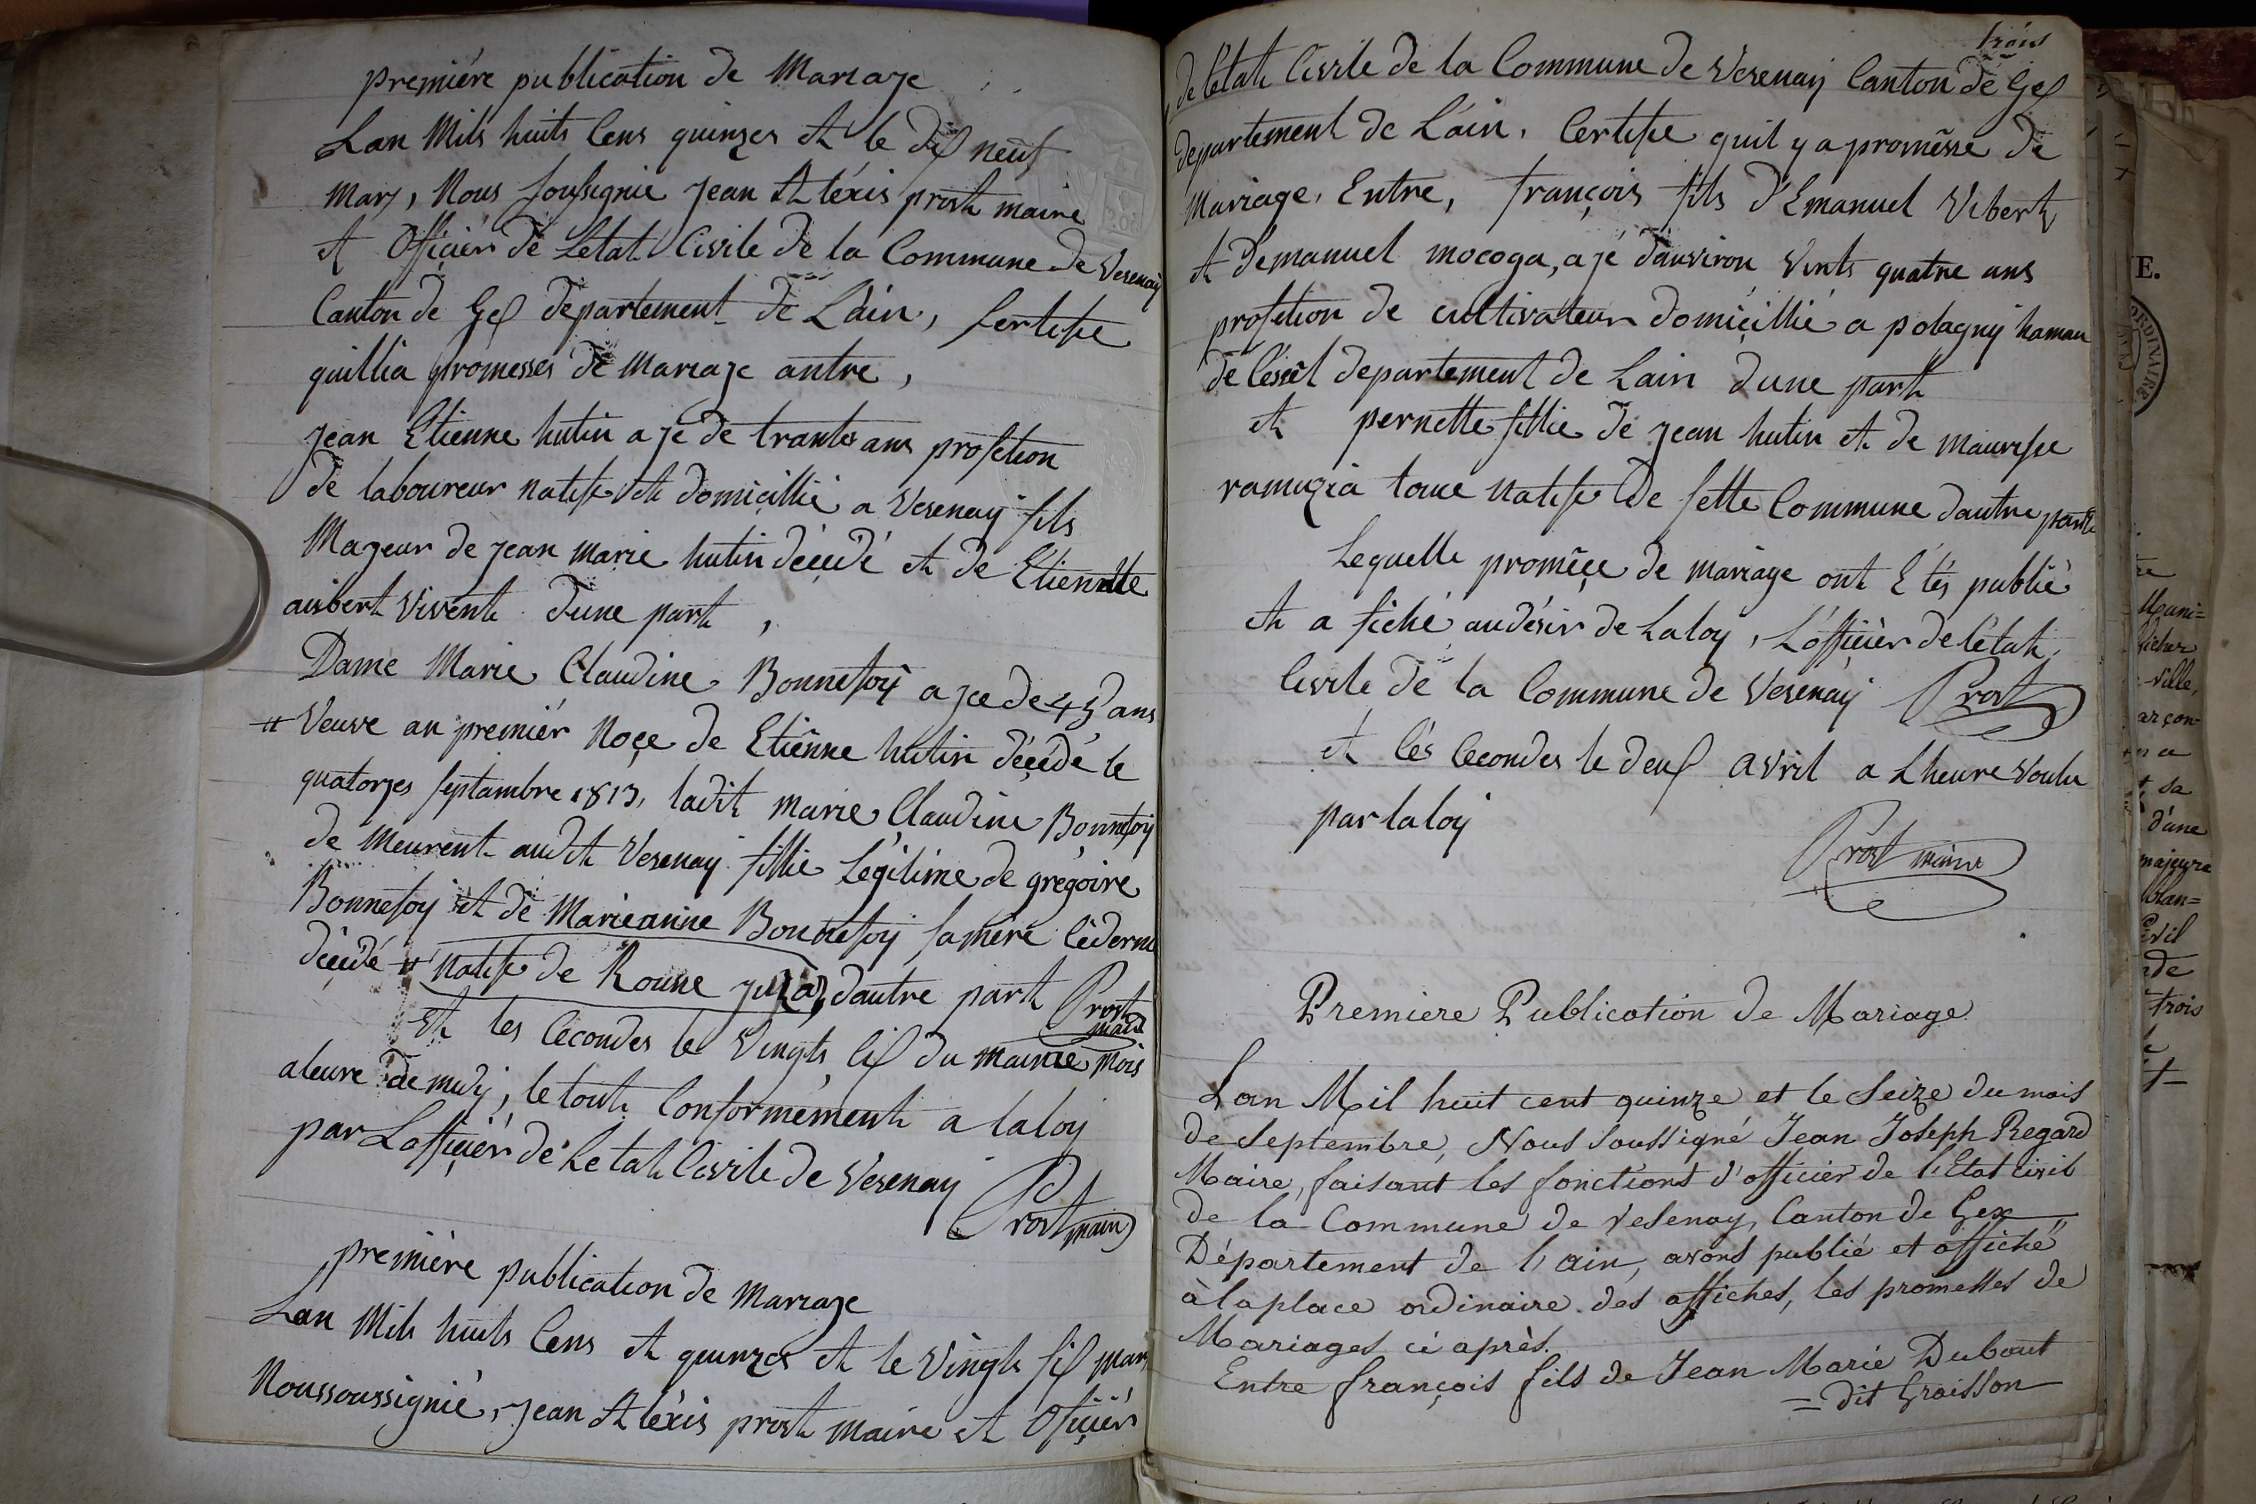 premiére publication de Mariage
Lan Mils huits Cens quinzes et le dix neuf
Mars, Nous soussignie Jean Aléxis prost maire
et Officiér de Létat Civile de la Commune de Vesenay
Canton de Gex département de Láin, Certifie
quillia promesses de Mariage antre,
Jean Etienne hutin age de trante ans profetion
de laboureur natife et domicillié a Vesenay fils
Majeur de jean marie hutin décédé et de Etiennette
aubert Vivente d'une part,
Dame Marie Claudine Bonnefoy agee de 45 ans
# Veuve an premiér Noçe de Etiênne hutin décédé le
quatorzes septambre 1813, ladit Marie Claudine Bonnefoy
de meurent audit Vesenay fillie Légitime de grégoire
Bonnefoy et de Marieanne Bonnefoy sa mére
décédé # natife de dautre part Prost
maire
et les Cecondes le Vingts six du mainme mois
aleure de midy, le tout Conformément a laloy
par Lofficiér de Letat Civile de Vesenay
Prost maire
premiére publication de Mariage
Lan Mils huits Cens et quinzes et le Vingts six mars
Noussoussignié, Jean Aléxis prost maire et Oficiér
trois
de Létat Civile de la Commune de Vesenay Canton de Gex
département de Láin, Certifie quil y a promêsse de
Mariage, Entre, françois fils d'Emanuel Vibert
et démanuel mocoga, agé dauviron Vints quatre ans
profetion de cultivateur domicillié a polagny hamau
de Césset departement de Lain dune part
et pernette fillie de jean hutin et de maurise
natife de sette Commune dautre parte
Lequelle promêçe de mariage ont Etés publié
et a fiché audésir de Laloy, Lófficièr de létat
Civile de la Commune de Vesenay Prost
et lés Cecondes le deux avril a Lheure voulu
par laloy
Prost maire
Premiere Publication de Mariage
Lan Mil huit cent quinze et le Seize du mois
de Septembre, Nous soussigné Jean Joseph Regard
Maire, faisant les fonctions d'officier de l'Etat Civil
de la Commune de Vesenay, Canton de Gex
Département de l'ain, avons publié et affiché
à la place ordinaire des affiches, les promesses de
Mariages ci après.
Entre françois fils de Jean Marie Dubout
= dit Graisson
E.
ORDINAIRE
Muni=
ville,
sa
d'une
majeure
Civil
de
trois